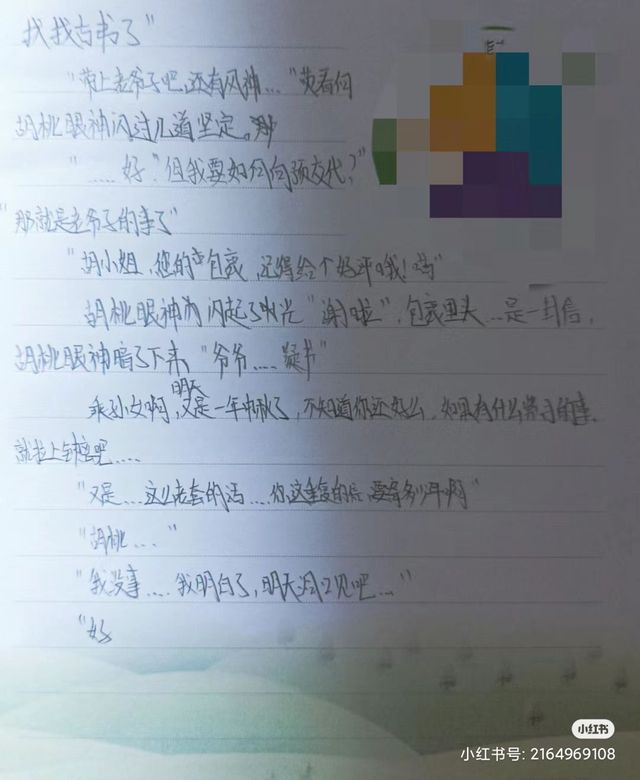 找找古书了"
"带上老爷子吧,还有风神..."黄看向
胡桃眼神闪过几道坚定。
"......好""但我要如何向 交代?"
"那就是老爷子的事了"
"胡小姐,您的 包裹,记得给个好评哦!"
胡桃眼神 闪起了 光"谢啦",包裹里头...是一封信,
胡桃眼神暗了下来"爷爷.... 书"
乖孙女啊,明天又是一年中秋了,不知道你还好么,如果有什么 的事,
就找上钟离吧....
"又是...这么老套的话....你这重复的信,要写多少年啊"
"胡桃...."
"我没事....我明白了,明天 口见吧..."
"好
小红书
小红书号: 2164969108